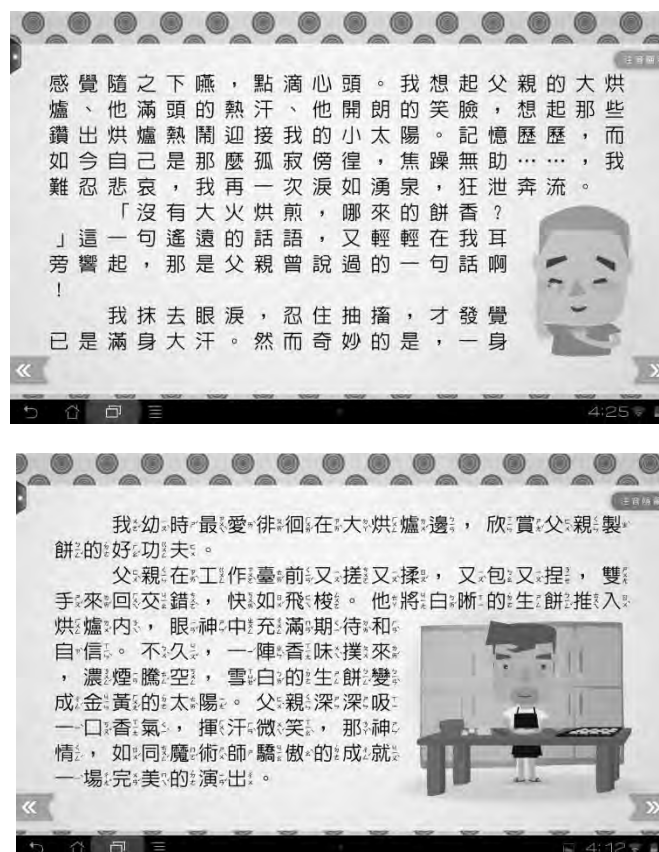 感覺隨之下嚥，點滴心頭。我想起父親的大烘
爐、他滿頭的熱汗、他開朗的笑臉，想起那些
鑽出烘爐熱鬧迎接我的小太陽。記憶歷歷，而
如今自己是那麼孤寂傍徨，焦躁無助……，我
難忍悲哀，我再一次淚如湧泉，狂泄奔流。
「沒有大火烘煎，哪來的餅香？
」這一句遙遠的話語，又輕輕在我耳
旁響起，那是父親曾說過的一句話啊
！
我抹去眼淚，忍住抽搐，才發覺
已是滿身大汗。然而奇妙的是，一身
4:25
我幼時最愛徘徊在大烘爐邊，欣賞父親製
餅的好功夫。
父親在工作臺前又搓又揉，又包又捏，雙
手來回交錯，快如飛梭。他將白晰的生餅推入
烘爐內，眼神中充滿期待和
自信。不久，一陣香味撲來
，濃煙騰空，雪白的生餅變
成金黃的太陽。父親深深吸
一口香氣，揮汗微笑，那神
情，如同魔術師驕傲的成就
一場完美的演出。
4:12